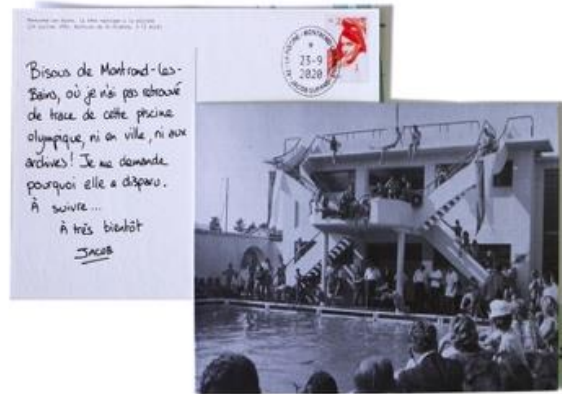 Bisous de Montrond-les-
Bains, où je n'ai pas retrouvé
de trace de cette piscine
olympique, ni en ville, ni aux
archives! Je me demande
pourquoi elle a disparu.
À suivre...
À très bientôt
JACOB
23-9
2020